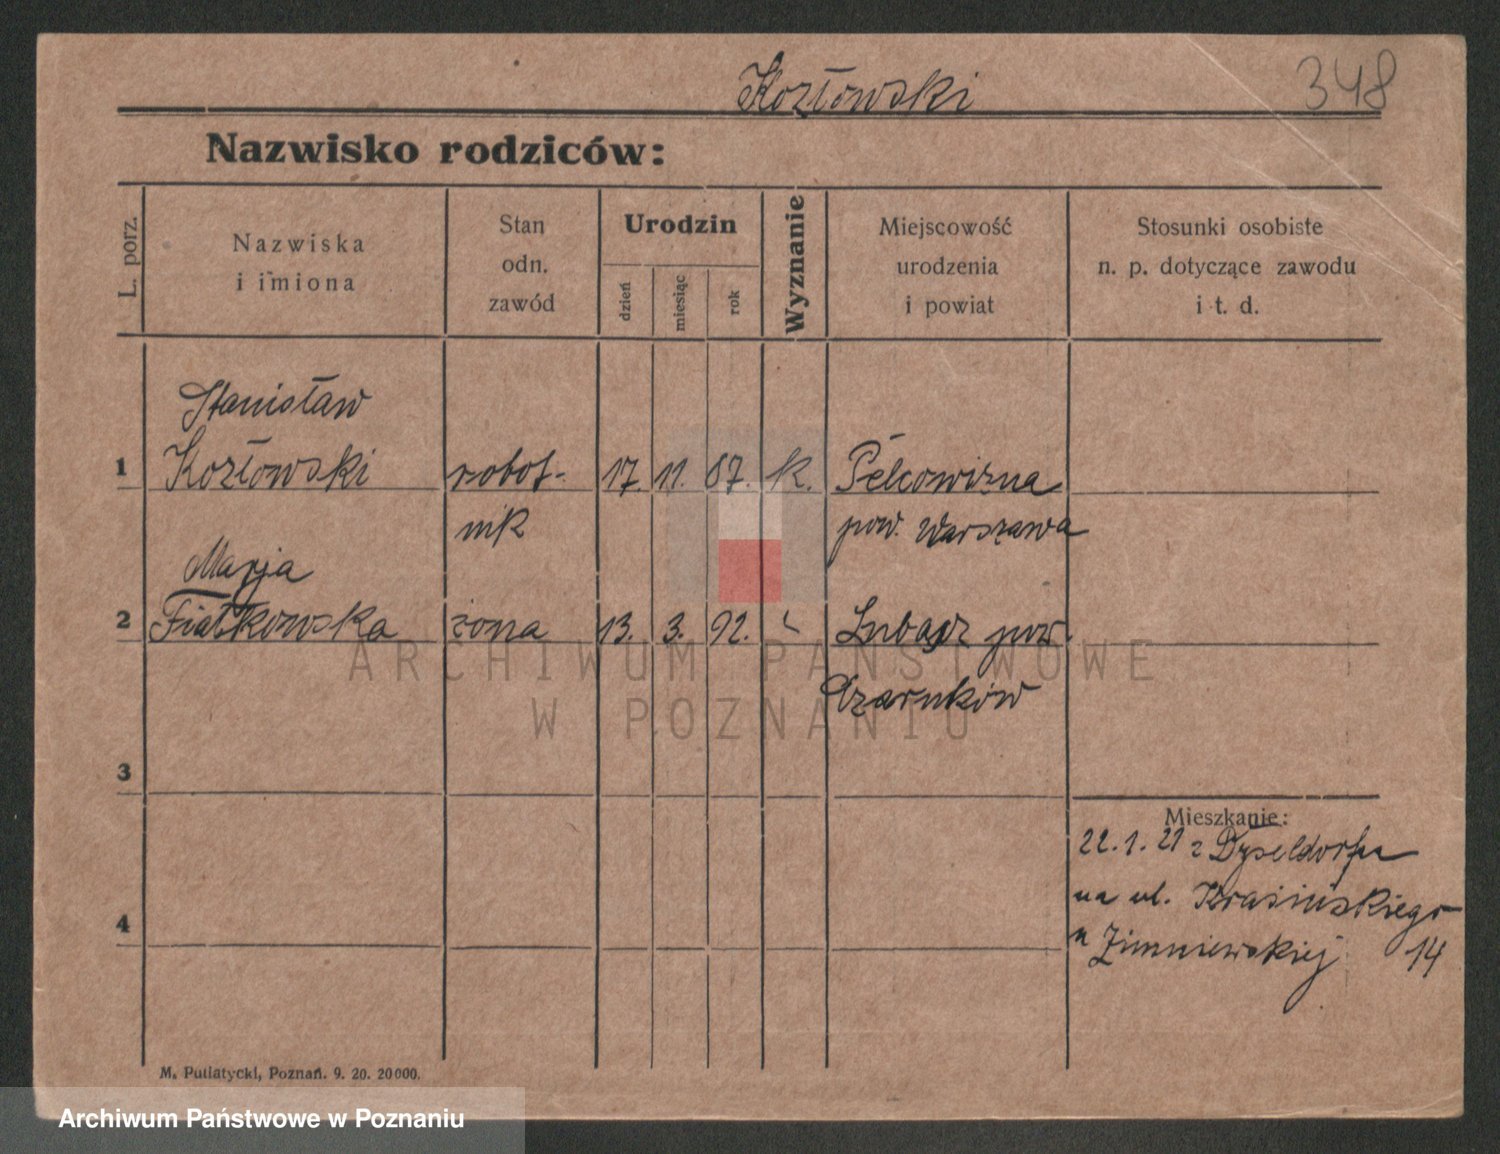 Kozłowski
348
Nazwisko rodziców:
L. porz.
Nazwiska
i imiona
Stan
odn.
zawód
Urodzin
dzień
miesiąc
rok
Wyznanie
Miejscowość
urodzenia
i powiat
Stosunki osobiste
n. p. dotyczące zawodu
i t. d.
Stanisław
1 Kozłowski robot- 17. 11. 87. k. Pelcowizna
nik pow. Warszawa
Marja
2 Fiałkowska żona 13. 3. 92. Lubasz pow.
Czarnków
3
Mieszkanie:
22.1.21 z Dyseldorfu
na ul. Krasińskiego
4
u Zimniewskiej 14
ARCHIWUM PAŃSTWOWE
W POZNANIU
M. Putiatycki, Poznań. 9. 20. 20000.
Archiwum Państwowe w Poznaniu